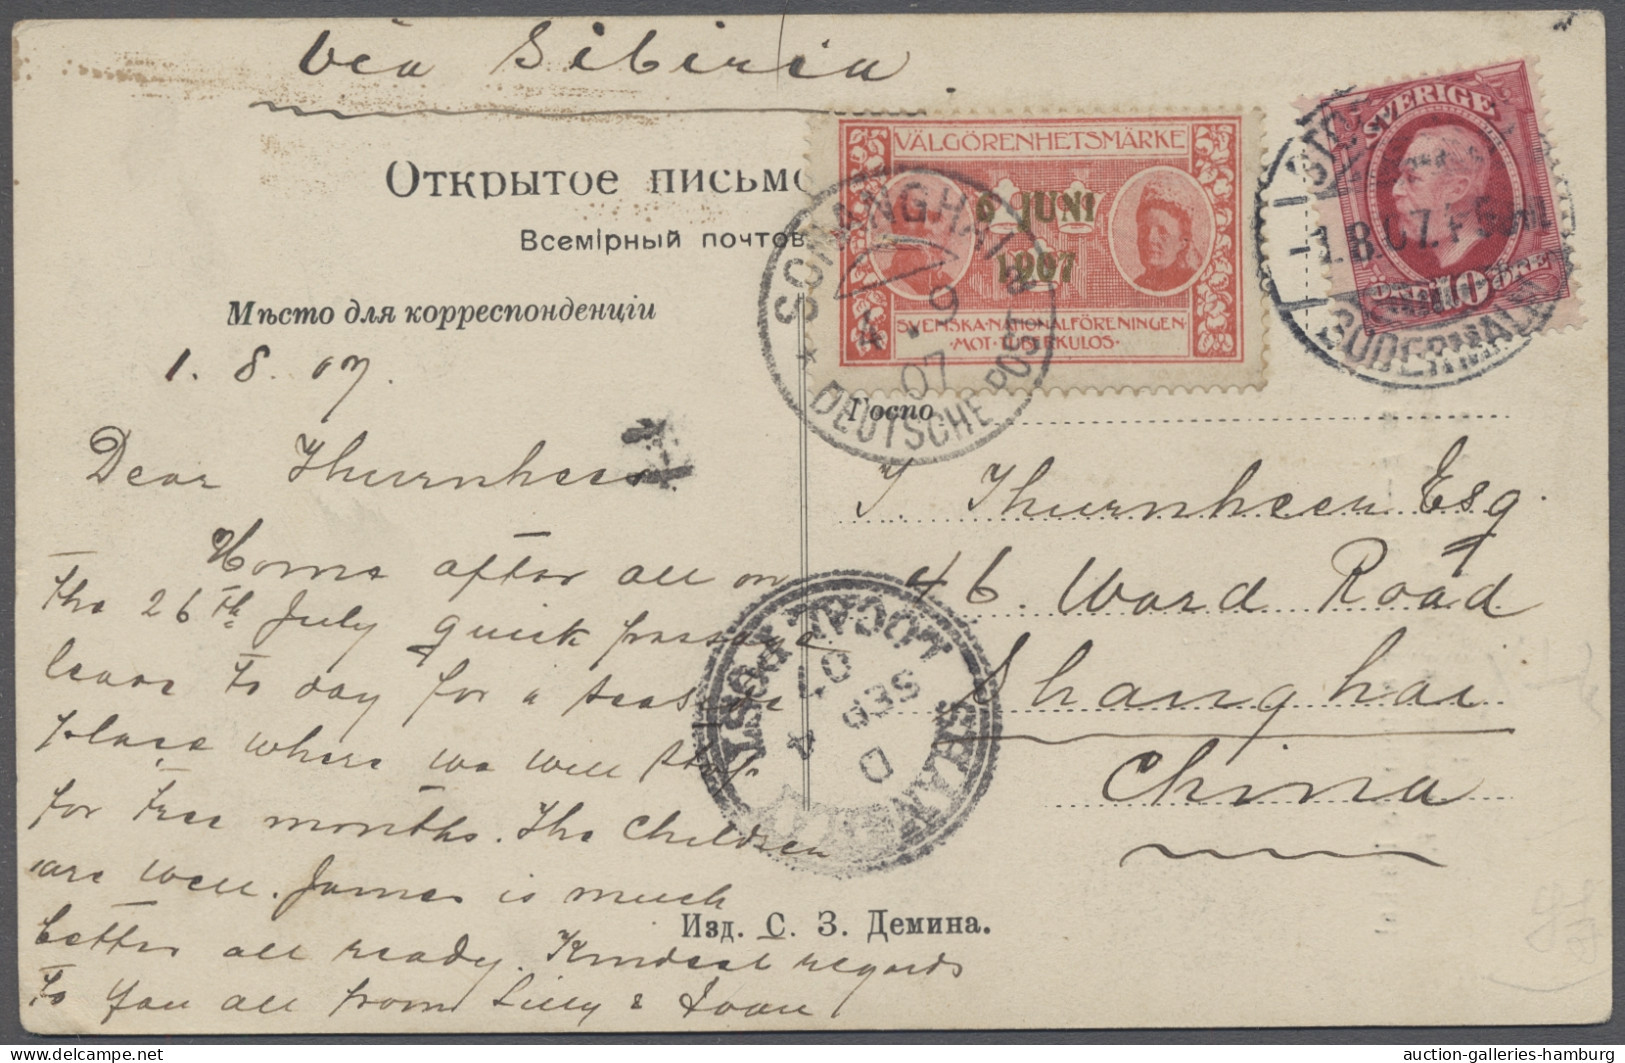 Via Sibiria.
Открытое письмо
Всемірный почтов
Мѣсто для корреспонденціи
VÄLGÖRENHETSMÄRKE
6 JUNI
1907
SVENSKA·NATIONALFÖRENINGEN·
·MOT·TUBERKULOS·
SVERIGE
10
SÖDERMALM
1.8.07.
SCHANGHAI
4 9
07
DEUTSCHE POST
1. 8. 07.
Госпо
Dear Thurnheer
Home after all on
the 26th July quick passage
leave to day for a seaside
place where we will stop
for tree months. The Children
are well. James is much
better all ready. Kindest regards
to you all from Lilly &
Thurnheer Esq
46. Ward Road
Shanghai
China
LOCAL POST
SHANGHAI
D
SEP
4
07
Изд. С. З. Демина.
auction-galleries-hamburg